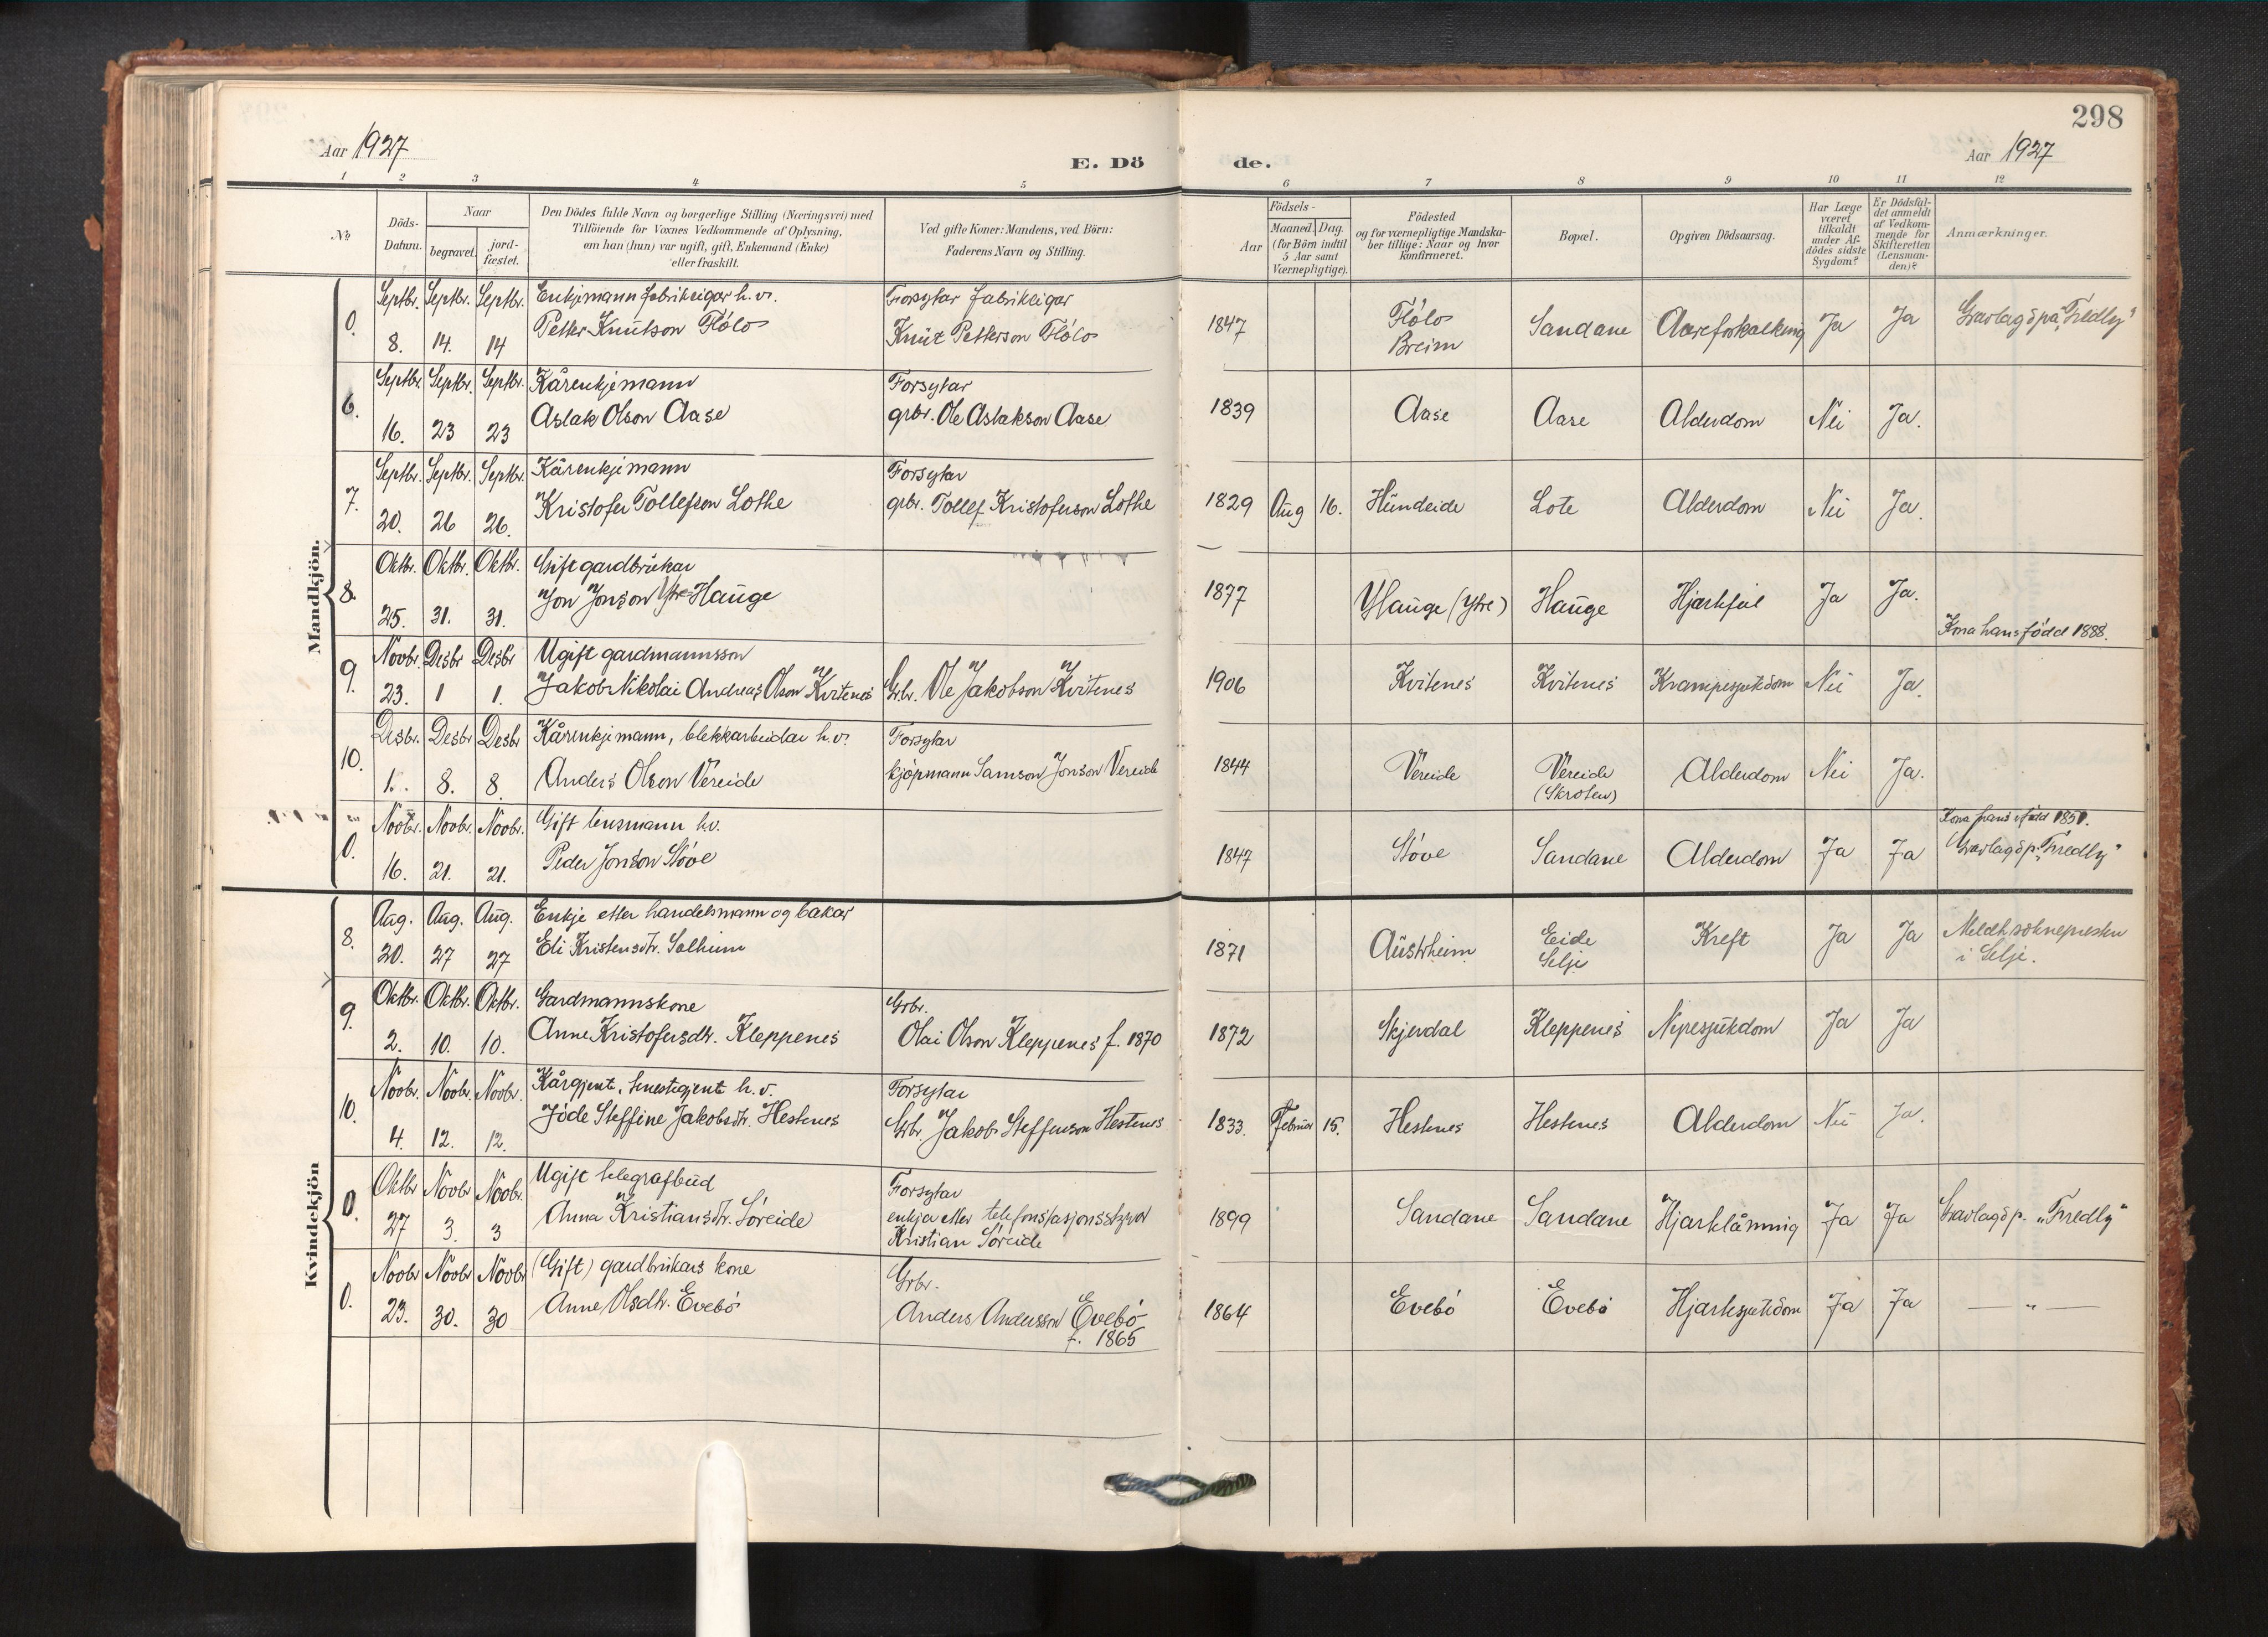 298
Aar 1927
E. Dö
de.
Aar 1927
1 2 3 4 5 6 7 8 9 10 11 12
No
Döds-Datum.
Naar
begravet.
jord-fæstet.
Den Dödes fulde Navn og borgerlige Stilling (Næringsvei) med
Tilföiende for Voxnes Vedkommende af Oplysning,
om han (hun) var ugift, gift, Enkemand (Enke)
eller fraskilt.
Ved gifte Koner: Mandens, ved Börn:
Faderens Navn og Stilling.
Födsels-
Aar
Maaned. Dag.
(for Börn indtil
5 Aar samt
Værnepligtige).
Födested
og for værnepligtige Mandska-
ber tillige: Naar og hvor
konfirmeret.
Bopæl.
Opgiven Dödsaarsag.
Har Læge
været
tilkaldt
under Af-
dödes sidste
Sygdom?
Er Dödsfal-
det anmeldt
af Vedkom-
mende for
Skifteretten
(Lensman-
den)?
Anmærkninger.
Mandkjön.
0. Septbr. 8. Septbr. 14. Septbr. 14 Enkjemann fabrikeigar h.v.
Petter Knutson Flólo
Forsytar fabrikeigar
Knut Petterson Flólo
1847 Flólo
Breim
Sandane Aareforkalking Ja Ja Gravlagd på "Fredly"
6. Septbr. 16. Septbr. 23 Septbr. 23 Kårenkjemann
Aslak Olson Aase
Forsytar
grbr. Ole Aslakson Aase
1839 Aase Aase Alderdom Nei Ja.
7. Septbr. 20. Septbr. 26 Septbr. 26. Kårenkjemann
Kristofer Tollefson Lothe
Forsytar
grbr. Tollef Kristoferson Lothe
1829 Aug 16. Hundeide Lote Alderdom Nei Ja.
8. Oktbr. 25. Oktbr. 31. Oktbr. 31. Gift gardbrukar
Jon Jonson Ytre-Hauge
1877 Hauge (Ytre) Hauge Hjartefeil Ja Ja.
Kona hans fødd 1888.
9. Novbr. 23. Desbr 1 Desbr 1. Ugift gardmannsson
Jakob Nikolai Andreas Olson Kvitenes
Grbr. Ole Jakobson Kvitenes
1906 Kvitenes Kvitenes Krampesjukdom Nei Ja.
10. Desbr. 1. Desbr 8. Desbr 8. Kårenkjemann, blekkarbeidar h.v.
Anders Olson Vereide
Forsytar
kjøpmann Samson Jonson Vereide
1844 Vereide Vereide
(Skroten)
Alderdom Nei Ja.
0. Novbr. 16. Novbr. 21. Novbr. 21. Gift lensmann h.v.
Peder Jonson Støve
1847 Støve Sandane Alderdom Ja Ja
Kona hans fødd 1851.
Gravlagd p. "Fredly"
Kvindekjön
8. Aug. 20. Aug. 27 Aug. 27 Enkje etter handelsmann og bakar
Eli Kristensdtr. Solheim
1871 Austrheim Eide
Selje
Kreft Ja Ja Meldt soknepresten
i Selje.
9. Oktbr. 2. Oktbr. 10. Oktbr. 10. Gardmannskone
Anne Kristofersdtr. Kleppenes
Grbr.
Olai Olson Kleppenes f. 1870
1872 Skjerdal Kleppenes Nyresjukdom Ja Ja
10. Novbr. 4. Novbr. 12. Novbr. 12. Kårgjent, tenestegjent h.v.
Jøde Steffine Jakobsdtr. Hestenes
Forsytar
Grbr. Jakob Steffenson Hestenes
1833. Februar 15. Hestenes Hestenes Alderdom Nei Ja.
0. Oktbr 27 Novbr 3. Novbr. 3 Ugift telegrafbud
Anna Kristiansdtr. Søreide
Forsytar
enkja etter telefonstasjonsstyrar
Kristian Søreide
1899 Sandane Sandane Hjarklåming Ja Ja Gravlagd p. "Fredly"
0. Novbr 23. Novbr 30. Novbr 30 (Gift) gardbrukars kone
Anne Olsdtr. Evebø
Grbr.
Anders Andersson Evebø
f. 1865
1864 Evebø Evebø Hjartesjukdom Ja Ja — " —